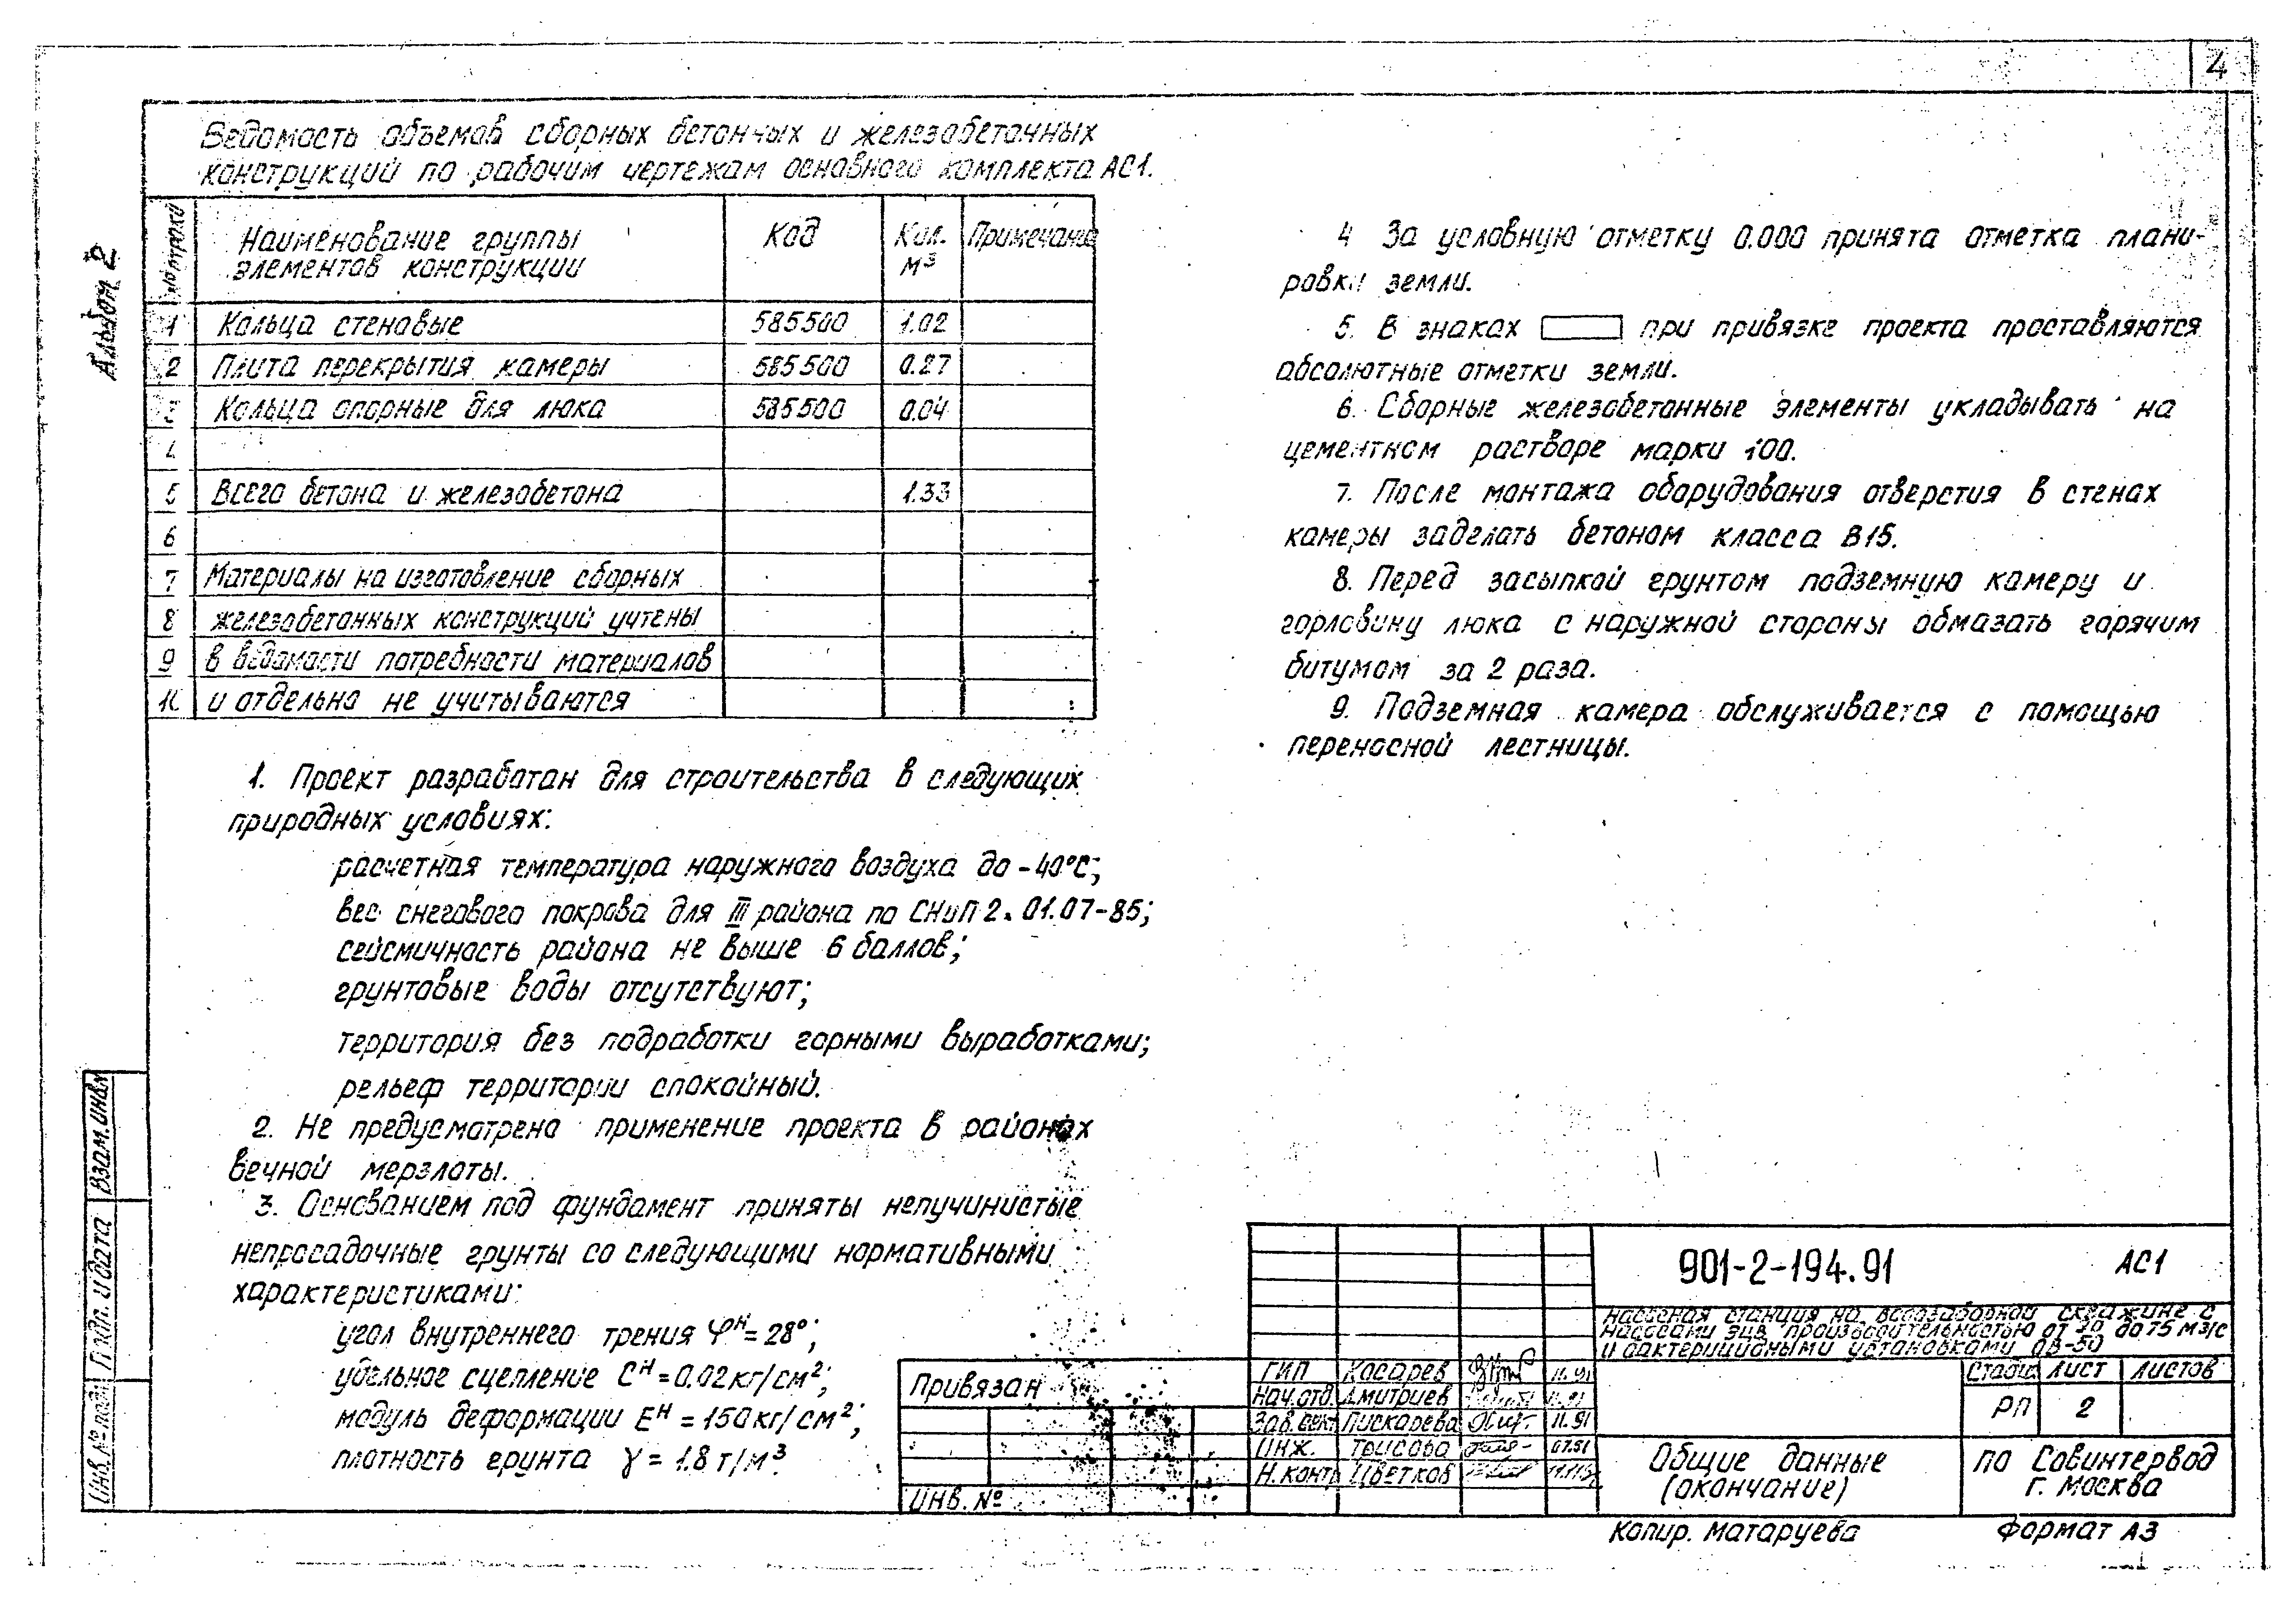 4
Альбом 2
Ведомость объемов сборных бетонных и железобетонных
конструкций по рабочим чертежам основного комплекта АС1.
№ строки
Наименование группы
элементов конструкции
Код
Кол.
м³
Примечание
1 Кольца стеновые 585500 1.02
2 Плита перекрытия камеры 585500 0.27
3 Кольца опорные для люка 585500 0.04
4
5 Всего бетона и железобетона 1.33
6
7 Материалы на изготовление сборных
8 железобетонных конструкций учтены
9 в ведомости потребности материалов
10 и отдельно не учитываются
1. Проект разработан для строительства в следующих
природных условиях:
расчетная температура наружного воздуха до -40°С;
вес снегового покрова для III района по СНиП 2.01.07-85;
сейсмичность района не выше 6 баллов;
грунтовые воды отсутствуют;
территория без подработки горными выработками;
рельеф территории спокойный.
2. Не предусмотрено применение проекта в районах
вечной мерзлоты.
3. Основанием под фундамент приняты непучинистые
непросадочные грунты со следующими нормативными
характеристиками:
угол внутреннего трения φᴴ = 28°;
удельное сцепление Сᴴ = 0.02 кг/см²;
модуль деформации Еᴴ = 150 кг/см²;
плотность грунта γ = 1.8 т/м³.
4 За условную отметку 0.000 принята отметка плани-
ровки земли.
5. В знаках при привязке проекта проставляются
абсолютные отметки земли.
6. Сборные железобетонные элементы укладывать на
цементном растворе марки 100.
7. После монтажа оборудования отверстия в стенах
камеры заделать бетоном класса В15.
8. Перед засыпкой грунтом подземную камеру и
горловину люка с наружной стороны обмазать горячим
битумом за 2 раза.
9. Подземная камера обслуживается с помощью
переносной лестницы.
Взам.инв.№
Подп. и дата
Инв.№ подл.
Привязан
Инв. №
901-2-194.91 АС1
Насосная станция на водозаборной скважине с
насосами ЭЦВ производительностью от 20 до 75 м3/с
и бактерицидными установками ОВ-50
ГИП Косарев 11.91
Нач.отд. Дмитриев 11.91
Зав.сект. Пискарева 11.91
Инж. 07.91
Н.контр. Цветков
Стадия Лист Листов
РП 2
Общие данные
(окончание)
ПО Совинтервод
г. Москва
Копир. Матаруева
Формат А3